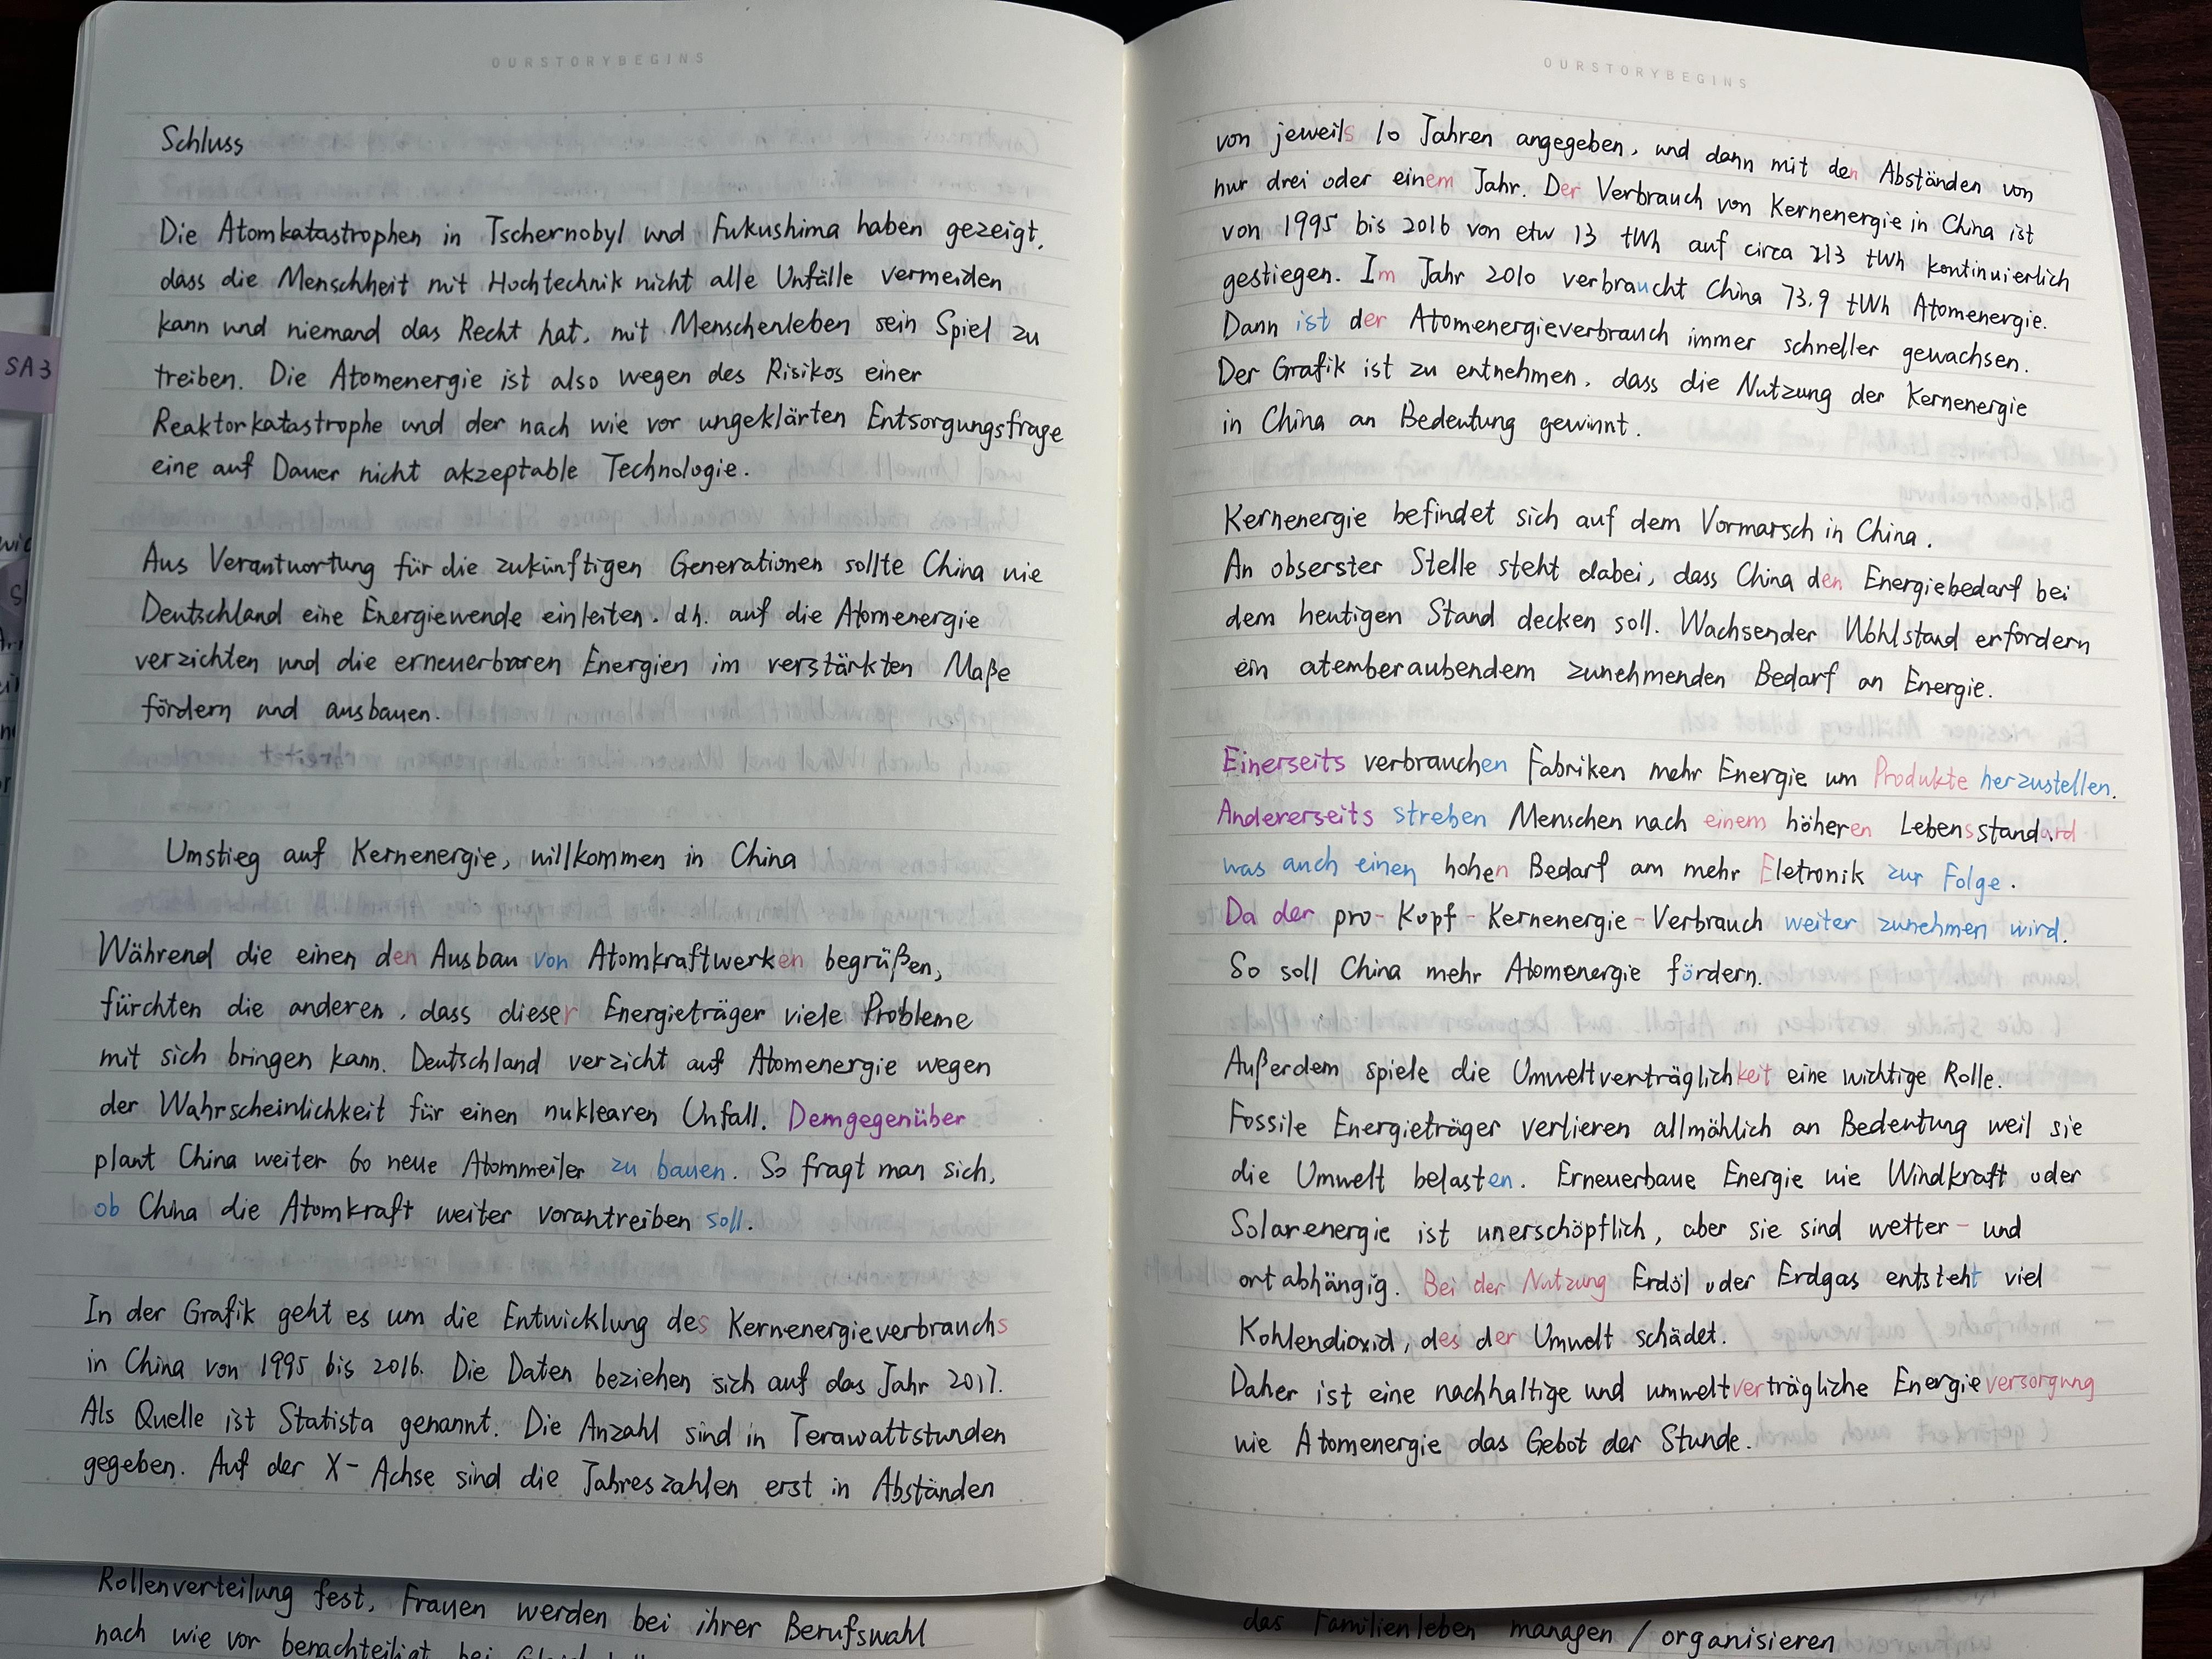 OURSTORYBEGINS
Schluss
Die Atomkatastrophen in Tschernobyl und Fukushima haben gezeigt,
dass die Menschheit mit Hochtechnik nicht alle Unfälle vermeiden
kann und niemand das Recht hat, mit Menschenleben sein Spiel zu
treiben. Die Atomenergie ist also wegen des Risikos einer
Reaktorkatastrophe und der nach wie vor ungeklärten Entsorgungsfrage
eine auf Dauer nicht akzeptable Technologie.
Aus Verantwortung für die zukünftigen Generationen sollte China wie
Deutschland eine Energiewende einleiten. d.h. auf die Atomenergie
verzichten und die erneuerbaren Energien im verstärkten Maße
fördern und ausbauen.
Umstieg auf Kernenergie, willkommen in China
Während die einen den Ausbau von Atomkraftwerken begrüßen,
fürchten die anderen, dass dieser Energieträger viele Probleme
mit sich bringen kann. Deutschland verzicht auf Atomenergie wegen
der Wahrscheinlichkeit für einen nuklearen Unfall. Demgegenüber
plant China weiter 60 neue Atommeiler zu bauen. So fragt man sich,
ob China die Atomkraft weiter vorantreiben soll.
In der Grafik geht es um die Entwicklung des Kernenergieverbrauchs
in China von 1995 bis 2016. Die Daten beziehen sich auf das Jahr 2017.
Als Quelle ist Statista genannt. Die Anzahl sind in Terawattstunden
gegeben. Auf der X-Achse sind die Jahreszahlen erst in Abständen
SA3
Rollenverteilung fest, Frauen werden bei ihrer Berufswahl
nach wie vor benachteiligt bei
OURSTORYBEGINS
von jeweils 10 Jahren angegeben, und dann mit den Abständen von
nur drei oder einem Jahr. Der Verbrauch von Kernenergie in China ist
von 1995 bis 2016 von etw 13 tWh auf circa 213 tWh kontinuierlich
gestiegen. Im Jahr 2010 verbraucht China 73.9 tWh Atomenergie.
Dann ist der Atomenergieverbrauch immer schneller gewachsen.
Der Grafik ist zu entnehmen, dass die Nutzung der Kernenergie
in China an Bedeutung gewinnt.
Kernenergie befindet sich auf dem Vormarsch in China.
An obserster Stelle steht dabei, dass China den Energiebedarf bei
dem heutigen Stand decken soll. Wachsender Wohlstand erfordern
ein atemberaubendem zunehmenden Bedarf an Energie.
Einerseits verbrauchen Fabriken mehr Energie um Produkte herzustellen.
Andererseits streben Menschen nach einem höheren Lebensstandard
was auch einen hohen Bedarf am mehr Eletronik zur Folge.
Da der pro-Kopf-Kernenergie-Verbrauch weiter zunehmen wird.
So soll China mehr Atomenergie fördern.
Außerdem spiele die Umweltverträglichkeit eine wichtige Rolle.
Fossile Energieträger verlieren allmählich an Bedeutung weil sie
die Umwelt belasten. Erneuerbaue Energie wie Windkraft oder
Solarenergie ist unerschöpflich, aber sie sind wetter- und
ortabhängig. Bei der Nutzung Erdöl oder Erdgas entsteht viel
Kohlendioxid, des der Umwelt schädet.
Daher ist eine nachhaltige und umweltverträgliche Energieversorgung
wie Atomenergie das Gebot der Stunde.
das Familienleben managen / organisieren